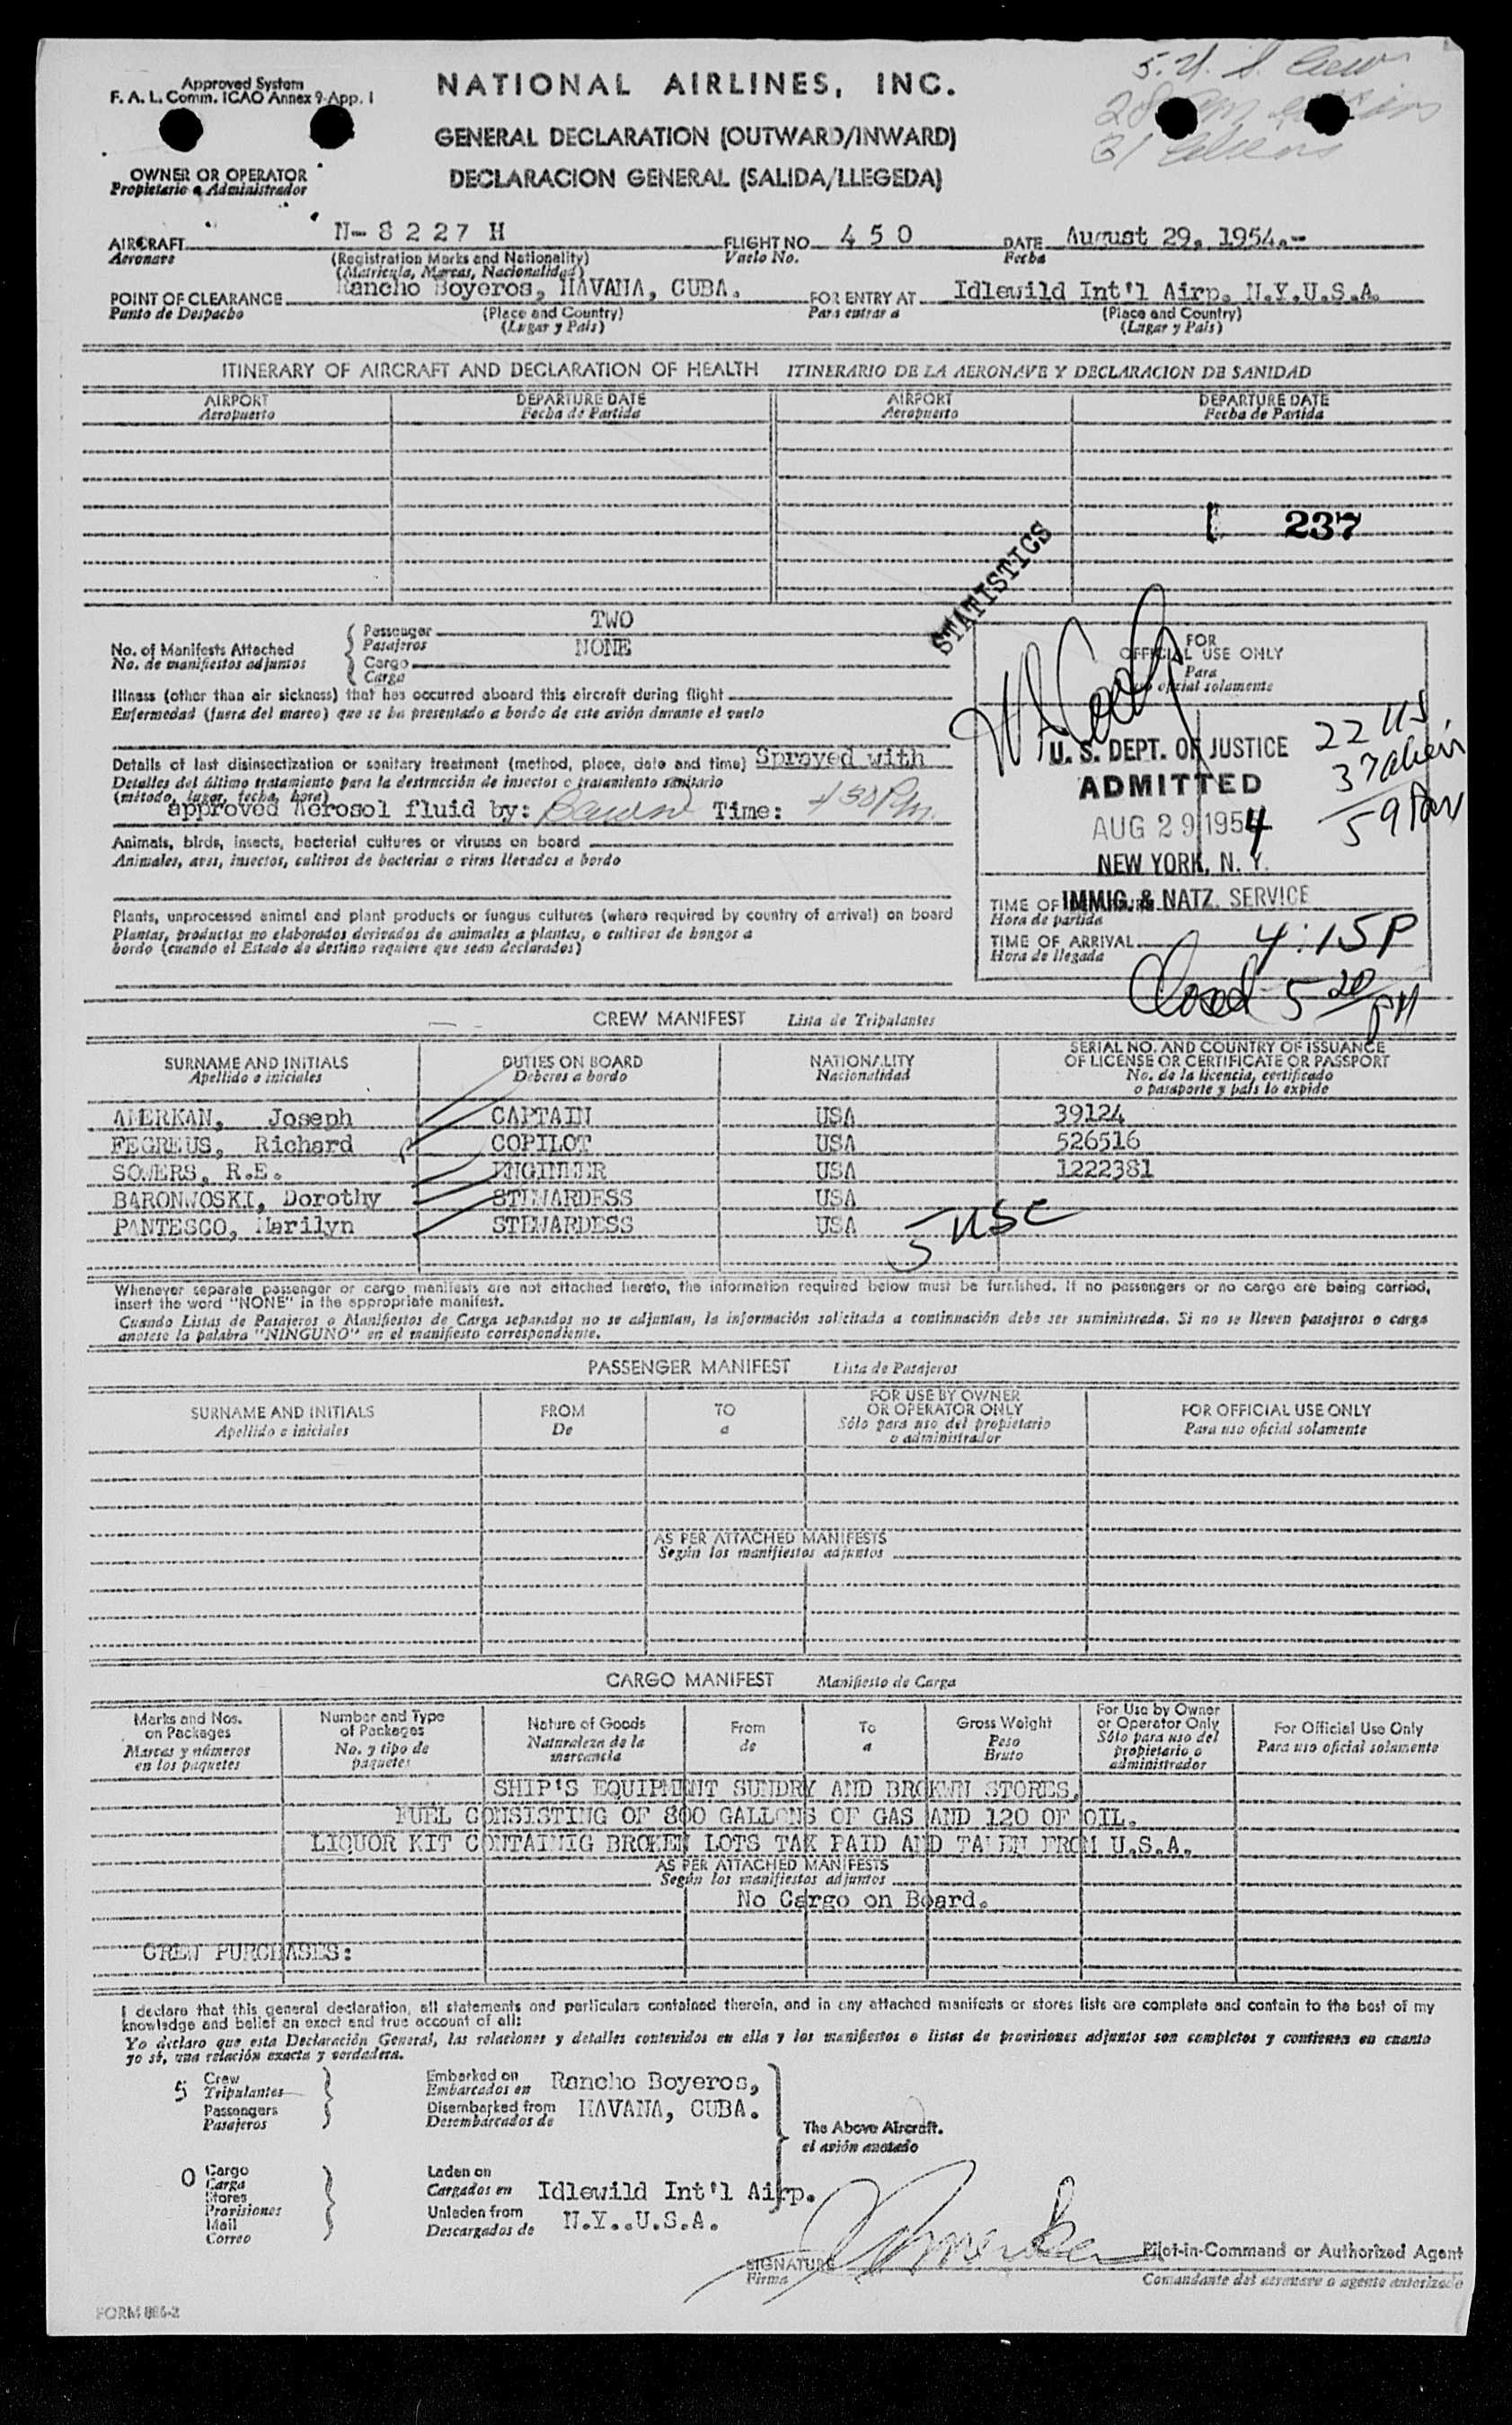 Approved System
F. A. L. Comm. ICAO Annex 9-App. 1
NATIONAL AIRLINES, INC.
5. U. S. Crew
GENERAL DECLARATION (OUTWARD/INWARD)
31 Aliens
OWNER OR OPERATOR
Propietario o Administrador
DECLARACION GENERAL (SALIDA/LLEGEDA)
AIRCRAFT N-8227 H FLIGHT NO. 450 DATE August 29, 1954.-
Aeronave (Registration Marks and Nationality) Vuelo No. Fecha
(Matricula, Marcas, Nacionalidad)
POINT OF CLEARANCE Rancho Boyeros, HAVANA, CUBA. FOR ENTRY AT Idlewild Int'l Airp. N.Y.U.S.A.
Punto de Despacho (Place and Country) Para entrar a (Place and Country)
(Lugar y Pais) (Lugar y Pais)
ITINERARY OF AIRCRAFT AND DECLARATION OF HEALTH ITINERARIO DE LA AERONAVE Y DECLARACION DE SANIDAD
AIRPORT DEPARTURE DATE AIRPORT DEPARTURE DATE
Aeropuerto Fecha de Partida Aeropuerto Fecha de Partida
237
STATISTICS
No. of Manifests Attached Passenger TWO
No. de manifiestos adjuntos Pasajeros
Cargo NONE
Carga
Illness (other than air sickness) that has occurred aboard this aircraft during flight
Enfermedad (fuera del mareo) que se ha presentado a bordo de este avión durante el vuelo
Details of last disinsectization or sanitary treatment (method, place, date and time) Sprayed with
Detalles del último tratamiento para la destrucción de insectos o tratamiento sanitario
(método, lugar, fecha, hora)
approved Aerosol fluid by: Time:
Animals, birds, insects, bacterial cultures or viruses on board
Animales, aves, insectos, cultivos de bacterias o virus llevados a bordo
Plants, unprocessed animal and plant products or fungus cultures (where required by country of arrival) on board
Plantas, productos no elaborados derivados de animales a plantas, o cultivos de hongos a
bordo (cuando el Estado de destino requiere que sean declarados)
FOR
OFFICIAL USE ONLY
Para
uso oficial solamente
22 US
U. S. DEPT. OF JUSTICE
37 alien
ADMITTED
59
AUG 29 1954
NEW YORK, N. Y.
IMMIG. & NATZ. SERVICE
TIME OF
Hora de partida
TIME OF ARRIVAL 4:15P
Hora de llegada
Closed 5 20 PM
CREW MANIFEST Lista de Tripulantes
SURNAME AND INITIALS DUTIES ON BOARD NATIONALITY SERIAL NO. AND COUNTRY OF ISSUANCE
Apellido e iniciales Deberes a bordo Nacionalidad OF LICENSE OR CERTIFICATE OR PASSPORT
No. de la licencia, certificado
o pasaporte y país lo expide
AMERKAN, Joseph CAPTAIN USA 39124
FEGREUS, Richard COPILOT USA 526516
SOMERS, R.E. ENGINEER USA 1222381
BARONWOSKI, Dorothy STEWARDESS USA
PANTESCO, Marilyn STEWARDESS USA 5 USC
Whenever separate passenger or cargo manifests are not attached hereto, the information required below must be furnished. If no passengers or no cargo are being carried,
insert the word "NONE" in the appropriate manifest.
Cuando Listas de Pasajeros o Manifiestos de Carga separados no se adjuntan, la información solicitada a continuación debe ser suministrada. Si no se lleven pasajeros o carga
anotese la palabra "NINGUNO" en el manifiesto correspondiente.
PASSENGER MANIFEST Lista de Pasajeros
SURNAME AND INITIALS FROM TO FOR USE BY OWNER FOR OFFICIAL USE ONLY
Apellido e iniciales De a OR OPERATOR ONLY Para uso oficial solamente
Sólo para uso del propietario
o administrador
AS PER ATTACHED MANIFESTS
Según los manifiestos adjuntos
CARGO MANIFEST Manifiesto de Carga
Marks and Nos. on Packages Number and Type of Packages Nature of Goods From To Gross Weight For Use by Owner or Operator Only For Official Use Only
Marcas y números en los paquetes No. y tipo de paquetes Naturaleza de la mercancia de a Peso Bruto Sólo para uso del propietario o administrador Para uso oficial solamente
SHIP'S EQUIPMENT SUNDRY AND BROKWN STORES.
FUEL CONSISTING OF 800 GALLONS OF GAS AND 120 OF OIL.
LIQUOR KIT CONTAINIG BROKEN LOTS TAX PAID AND TAKEN FROM U.S.A.
AS PER ATTACHED MANIFESTS
Según los manifiestos adjuntos
No Cargo on Board.
CREW PURCHASES:
I declare that this general declaration, all statements and particulars contained therein, and in any attached manifests or stores lists are complete and contain to the best of my
knowledge and belief an exact and true account of all:
Yo declaro que esta Declaración General, las relaciones y detalles contenidos en ella y los manifiestos o listas de provisiones adjuntos son completos y contienen en cuanto
yo sé, una relación exacta y verdadera.
5 Crew Embarked on Rancho Boyeros,
Tripulantes Embarcados en
Passengers Disembarked from HAVANA, CUBA.
Pasajeros Desembarcados de
The Above Aircraft.
el avión anotado
0 Cargo Laden on
Carga Cargados en Idlewild Int'l Airp.
Stores
Provisiones Unladen from N.Y..U.S.A.
Mail Descargados de
Correo
SIGNATURE Pilot-in-Command or Authorized Agent
Firma Comandante del aeronave o agente autorizado
FORM 886-2